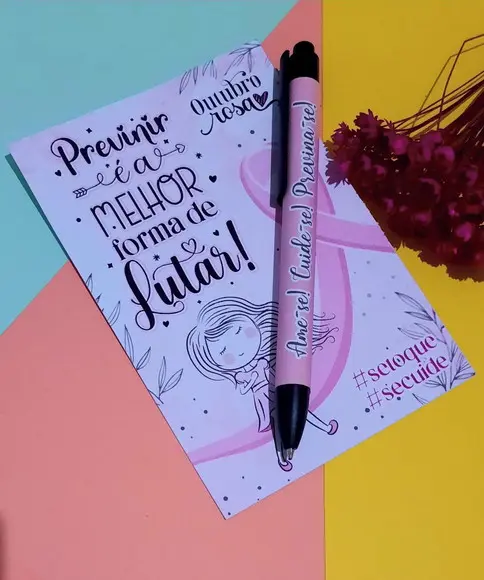 Previnir
é a
MELHOR
forma de
Lutar!
Outubro
rosa
Ame-se! Cuide-se! Previna-se!
#setoque
#secuide